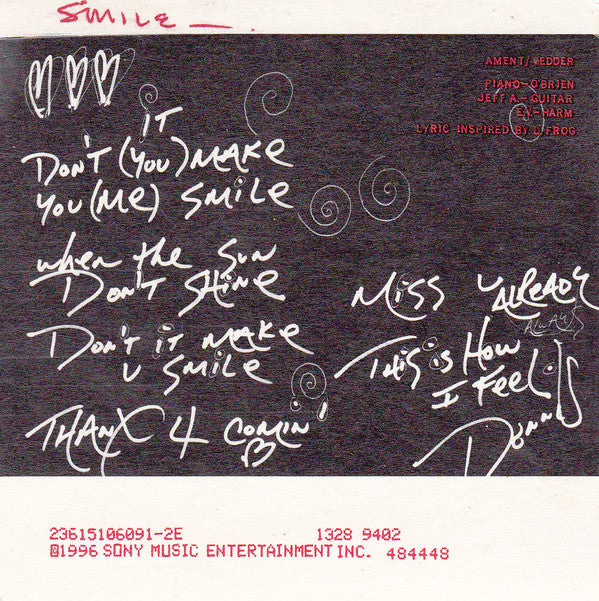 SMILE
AMENT/VEDDER
PIANO-O'BRIEN
JEFF A.-GUITAR
E.V-HARM
LYRIC INSPIRED BY D.FROG
IT
DON'T (YOU) MAKE
YOU (ME) SMILE
when the SUN
DON'T SHINE
DON'T it MAKE
U SMILE
THANX 4 COMIN'
MISS U ALREADY
ALWAYS
THIS is HOW
I FEEL
DENNIS
23615106091-2E 1328 9402
©1996 SONY MUSIC ENTERTAINMENT INC. 484448